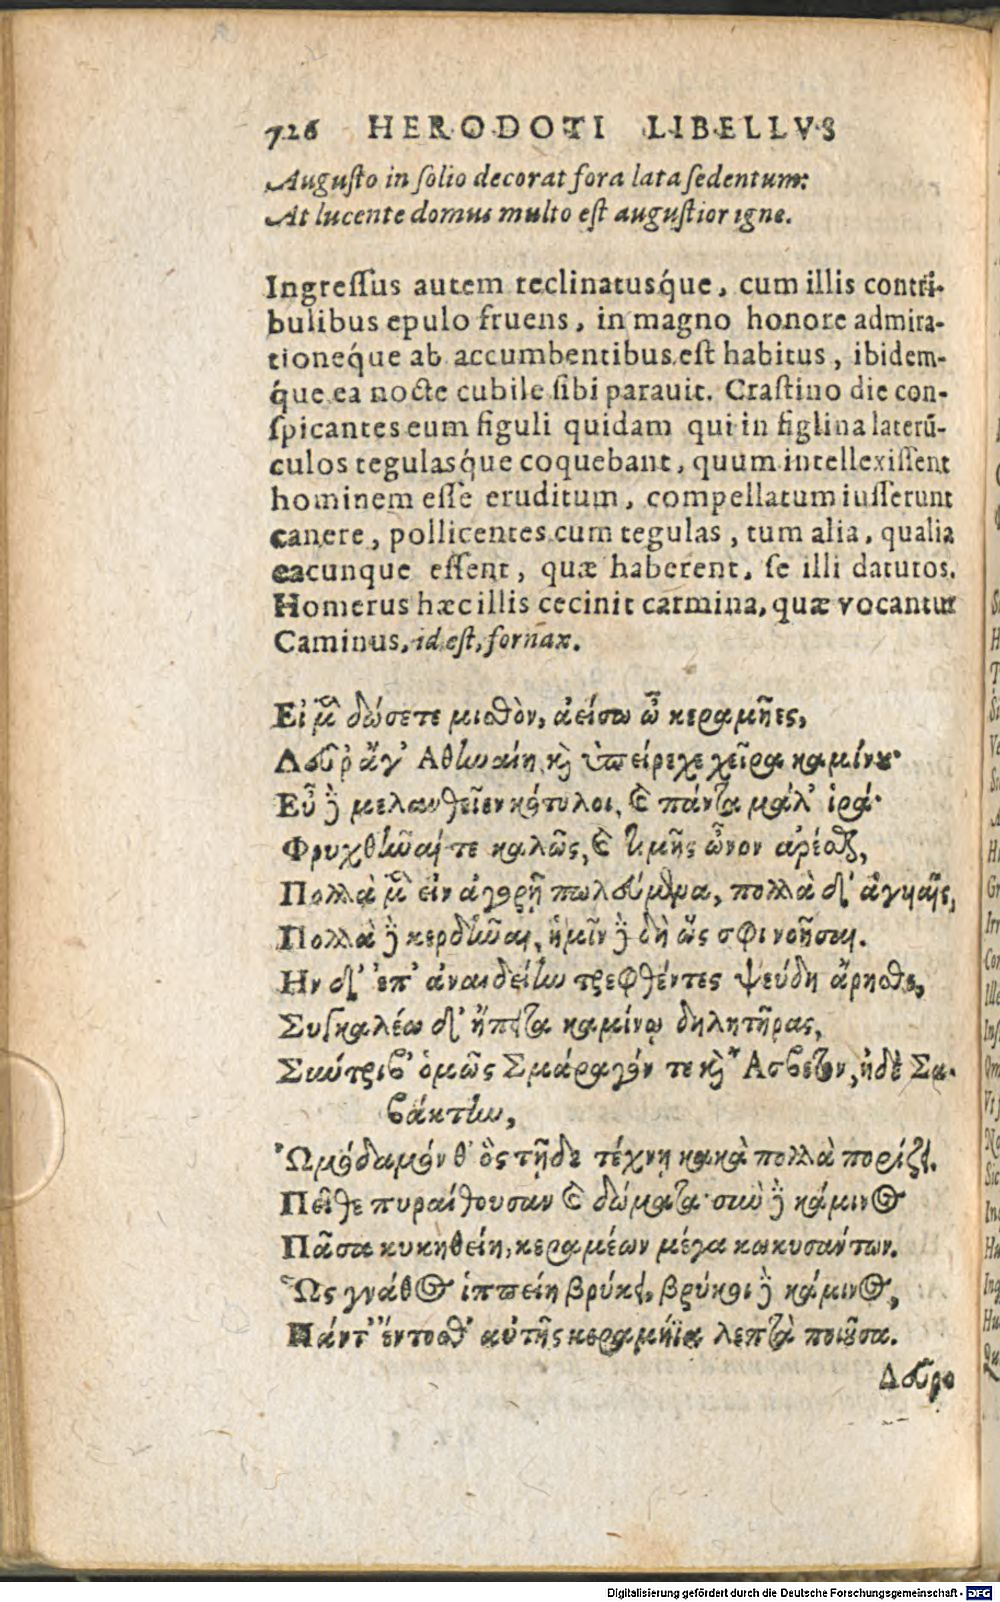 726 HERODOTI LIBELLVS
Augusto in solio decorat fora lata sedentum:
At lucente domus multo est augustior igne.
Ingressus autem reclinatusq́ue, cum illis contri-
bulibus epulo fruens, in magno honore admira-
tioneq́ue ab accumbentibus est habitus, ibidem-
q́ue ea nocte cubile sibi parauit. Crastino die con-
spicantes eum figuli quidam qui in figlina laterū-
culos tegulasq́ue coquebant, quum intellexissent
hominem esse eruditum, compellatum iusserunt
canere, pollicentes cum tegulas, tum alia, qualia
eacunque essent, quæ haberent, se illi daturos.
Homerus hæc illis cecinit carmina, quæ vocantur
Caminus, id est, fornax.
Εἰ μὲν δώσετε μισθὸν, ἀείσω ὦ κεραμῆες,
Δεῦρ' ἄγ' Ἀθηναίη καὶ ὑπείρεχε χεῖρα καμίνου·
Εὖ δὲ μελανθεῖεν κότυλοι, καὶ πάντα μάλ' ἱρά·
Φρυχθῆναί τε καλῶς, καὶ τιμῆς ὦνον ἀρέσθαι,
Πολλὰ μὲν εἰν ἀγορῇ πωλεύμενα, πολλὰ δ' ἀγυιαῖς,
Πολλὰ δὲ κερδῆναι, ἡμῖν δὲ δὴ ὥς σφι νοῆσαι.
Ην δ' ἐπ' ἀναιδείην τρεφθέντες ψεύδη ἄρησθε,
Συγκαλέω δ' ἤπειτα καμίνῳ δηλητῆρας,
Σύντριβ' ὁμῶς Σμάραγόν τε καὶ Ἄσβετον, ἠδὲ Σα-
βάκτην,
Ὠμόδαμόν θ' ὃς τῇδε τέχνῃ κακὰ πολλὰ πορίζει.
Πεῖθε πυραίθουσαν καὶ δώματα· σὺν δὲ κάμινος
Πᾶσα κυκηθείη, κεραμέων μέγα κωκυσάντων.
Ὣς γνάθος ἱππείη βρύκει, βρύκοι δὲ κάμινος,
Πάντ' ἔντοσθ' αὐτῆς κεραμήϊα λεπτὰ ποιοῦσα.
Δεῦρο
Digitalisierung gefördert durch die Deutsche Forschungsgemeinschaft - DFG